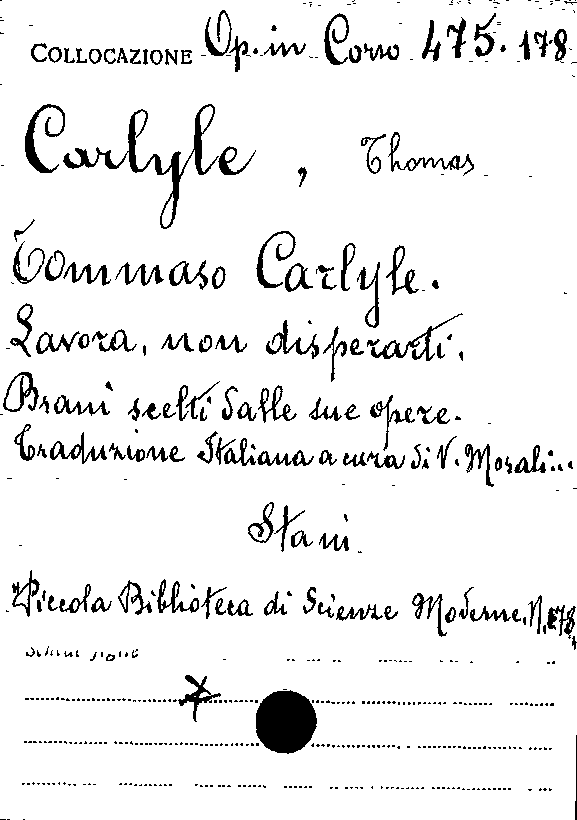 COLLOCAZIONE Op. in Corso 475. 178
Carlyle, Thomas
Tommaso Carlyle.
Lavora, non disperarti.
Brani scelti dalle sue opere.
Traduzione Italiana a cura di V. Morali...
Stani
"Piccola Biblioteca di Scienze Moderne, N. 178